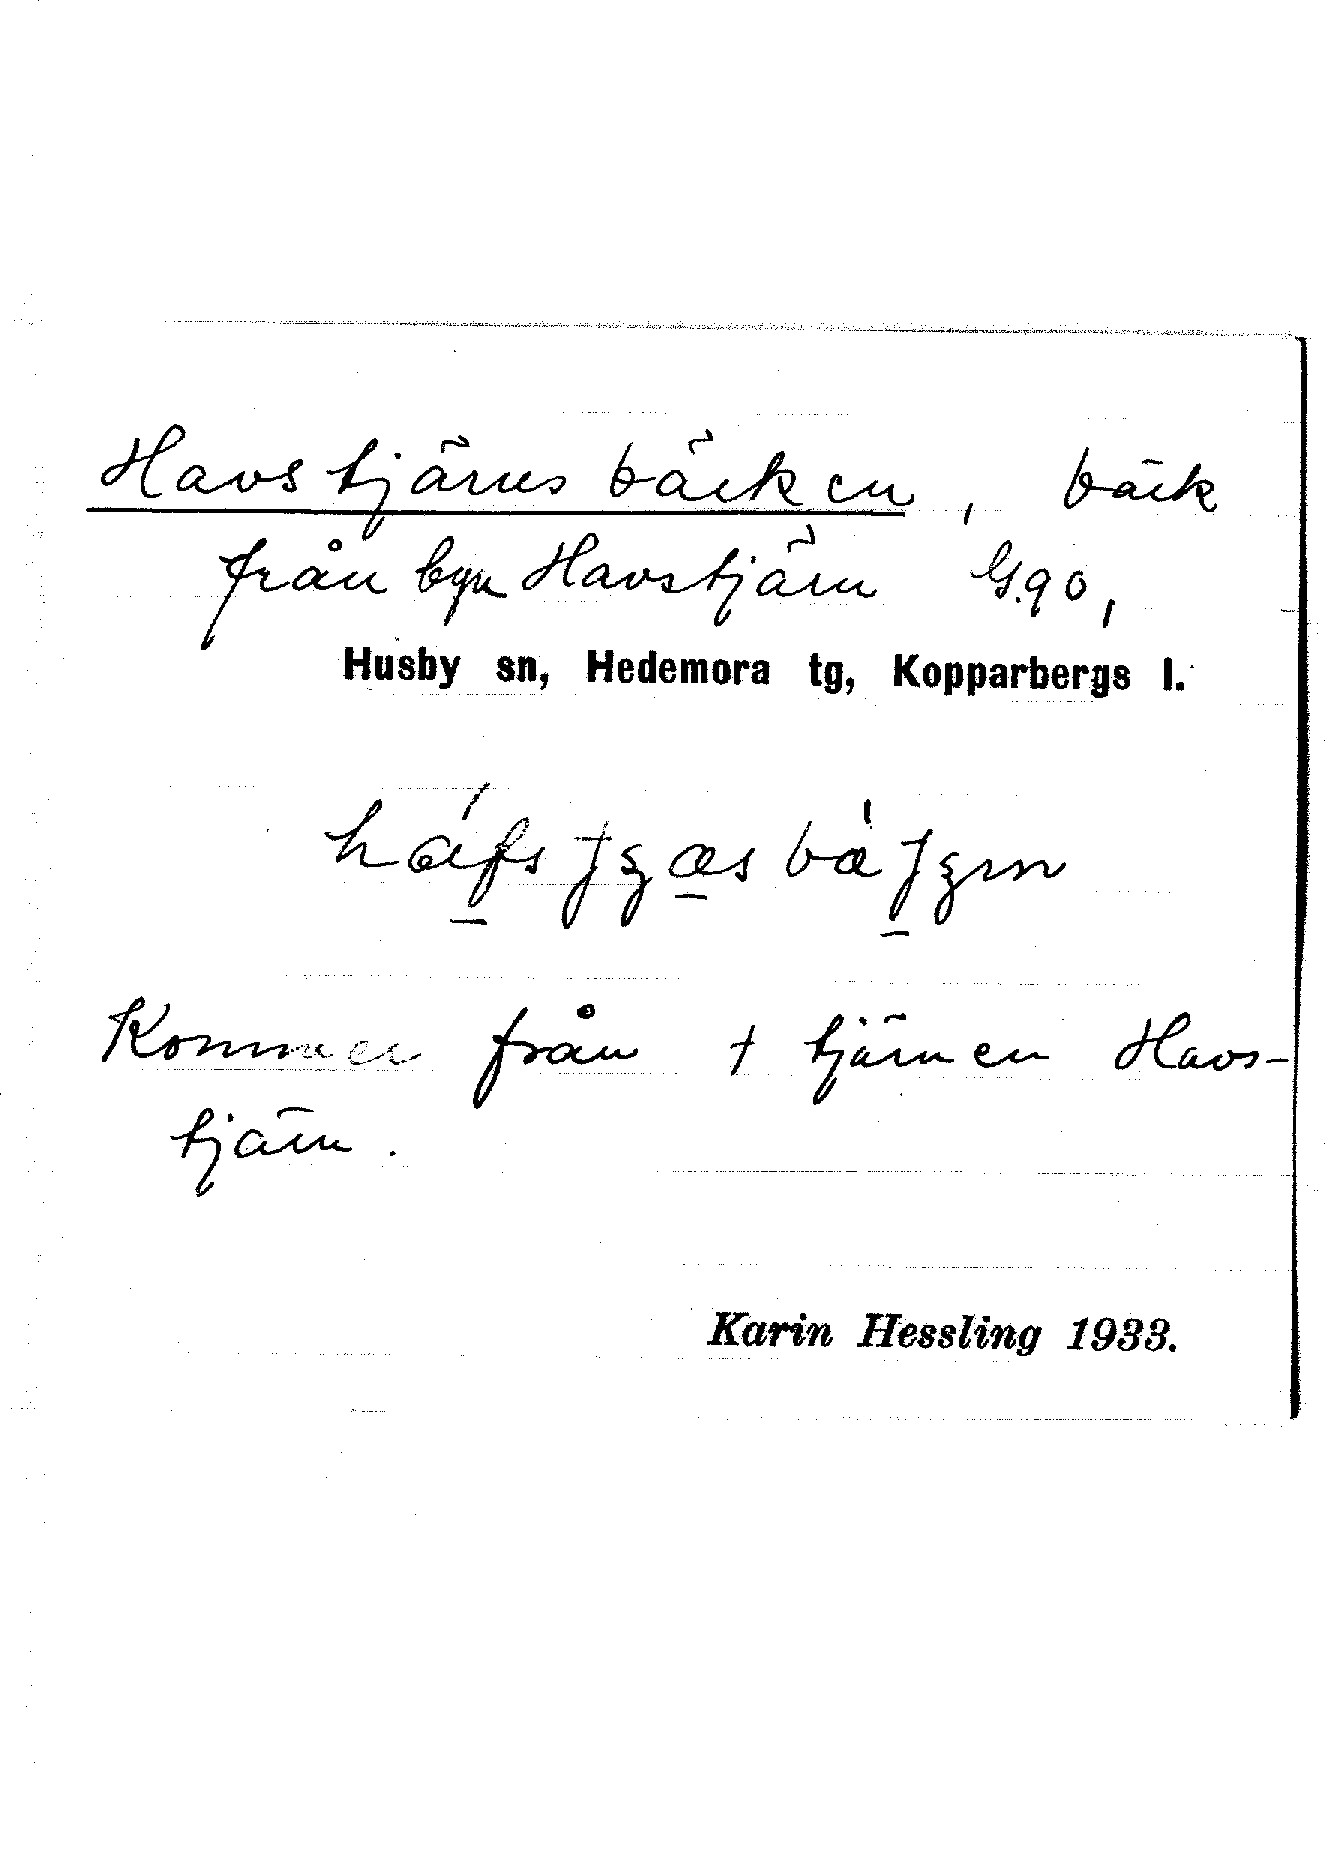 Havstjärnsbäcken, bäck
från byn Havstjärn G.90,
Husby sn, Hedemora tg, Kopparbergs l.
Kommer från † tjärnen Havs-
tjärn.
Karin Hessling 1933.